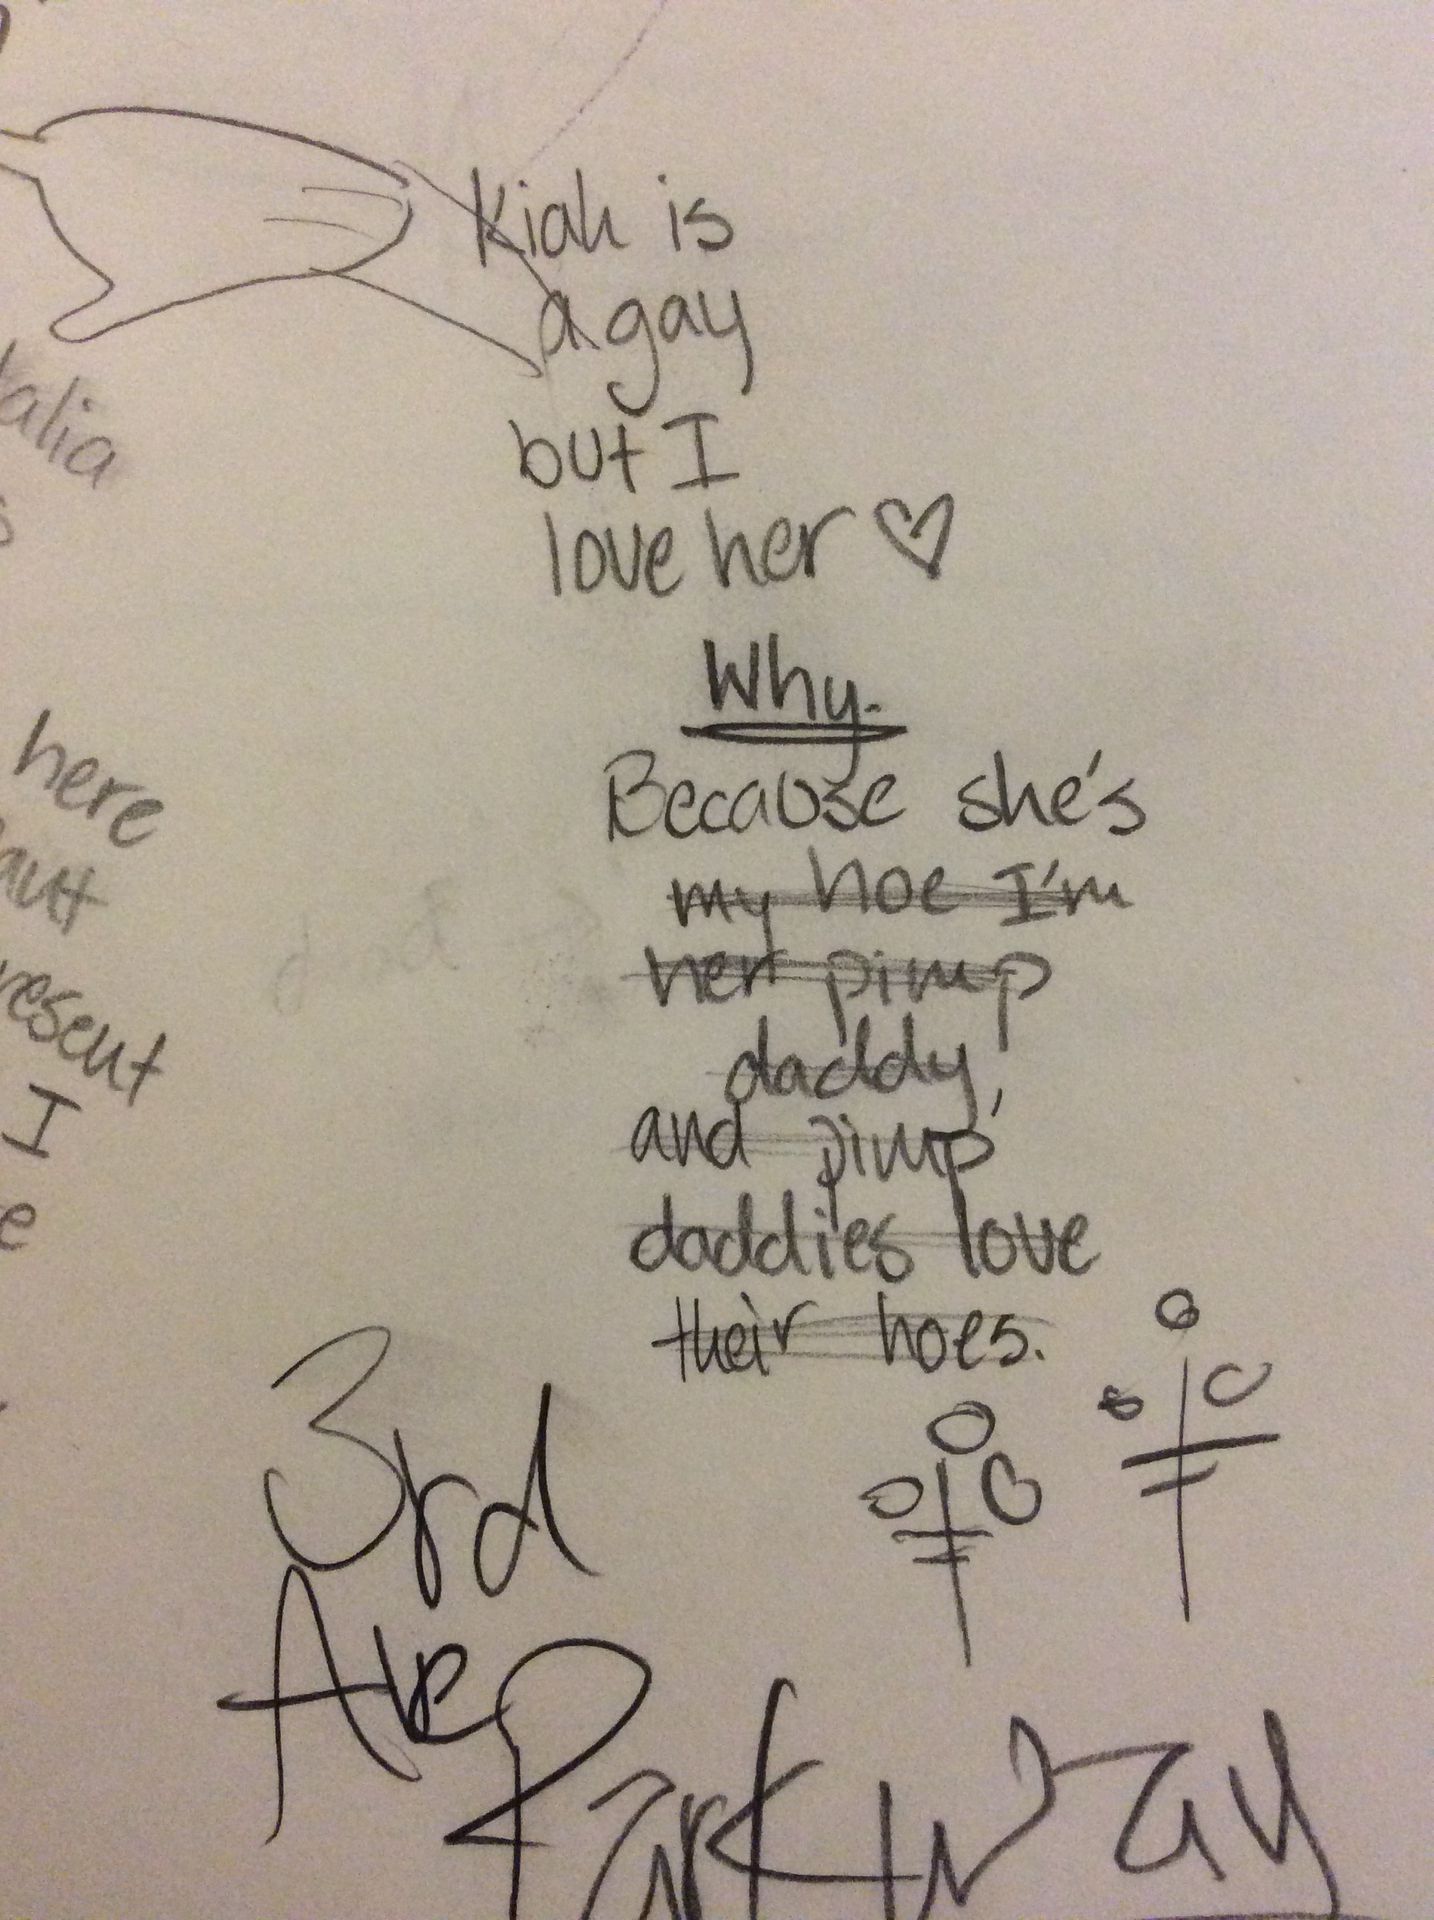 Kiah is
a gay
but I
love her
Why.
Because she's
my hoe I'm
her pimp
daddy,
and pimp
daddies love
their hoes.
here
I
3rd
Ave
Parkway